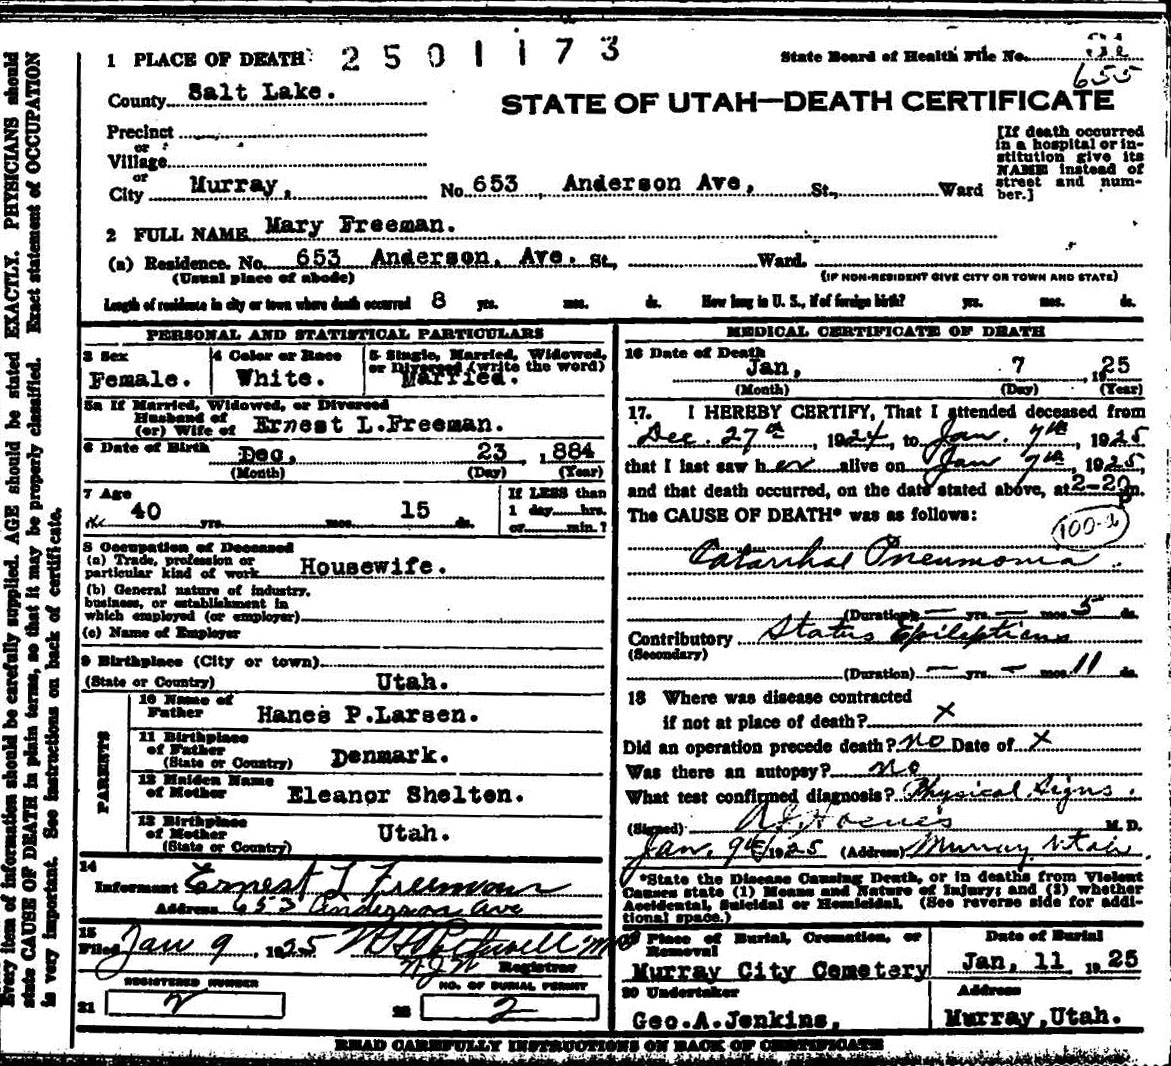 1 PLACE OF DEATH 2501173
State Board of Health File No.
655
County Salt Lake.
STATE OF UTAH—DEATH CERTIFICATE
Precinct
or
Village
or
City Murray, No. 653 Anderson Ave, St., Ward
[If death occurred
in a hospital or in-
stitution give its
NAME instead of
street and num-
ber.]
2 FULL NAME Mary Freeman.
(a) Residence. No. 653 Anderson, Ave. St., Ward.
(Usual place of abode) (IF NON-RESIDENT GIVE CITY OR TOWN AND STATE)
Length of residence in city or town where death occurred 8 yrs. mos. ds. How long in U. S., if of foreign birth? yrs. mos. ds.
PERSONAL AND STATISTICAL PARTICULARS
3 Sex
Female.
4 Color or Race
White.
5 Single, Married, Widowed,
or Divorced (write the word)
Married.
5a If Married, Widowed, or Divorced
Husband of
(or) Wife of Ernest L.Freeman.
6 Date of Birth Dec, 23 1,884
(Month) (Day) (Year)
7 Age
40 yrs. mos. 15 ds.
If LESS than
1 day hrs.
or min.?
8 Occupation of Deceased
(a) Trade, profession or
particular kind of work Housewife.
(b) General nature of industry,
business, or establishment in
which employed (or employer)
(c) Name of Employer
9 Birthplace (City or town)
(State or Country) Utah.
PARENTS
10 Name of
Father Hanes P.Larsen.
11 Birthplace
of Father
(State or Country) Denmark.
12 Maiden Name
of Mother Eleanor Shelten.
13 Birthplace
of Mother
(State or Country) Utah.
14
Informant Ernest L Freeman
Address 653 Anderson Ave
15
Filed Jan 9 1925
Registrar
REGISTERED NUMBER
21 2
NO. OF BURIAL PERMIT
22 2
MEDICAL CERTIFICATE OF DEATH
16 Date of Death
Jan, 7 1925
(Month) (Day) (Year)
17. I HEREBY CERTIFY, That I attended deceased from
Dec. 27th, 1924, to Jan. 7th, 1925
that I last saw her alive on Jan 7th, 1925,
and that death occurred, on the date stated above, at 2-20 P m.
The CAUSE OF DEATH* was as follows:
100-2
Catarrhal Pneumonia.
(Duration) — yrs. — mos. 5 ds.
Contributory Status Epilepticus
(Secondary)
(Duration) — yrs. — mos. 11 ds.
18 Where was disease contracted
if not at place of death? X
Did an operation precede death? no Date of X
Was there an autopsy? no
What test confirmed diagnosis? Physical Signs.
(Signed) M. D.
Jan. 9th, 1925 (Address) Murray Utah.
*State the Disease Causing Death, or in deaths from Violent
Causes state (1) Means and Nature of Injury; and (2) whether
Accidental, Suicidal or Homicidal. (See reverse side for addi-
tional space.)
Place of Burial, Cremation, or
Removal
Murray City Cemetery
Date of Burial
Jan, 11 1925
20 Undertaker
Geo.A.Jenkins,
Address
Murray,Utah.
READ CAREFULLY INSTRUCTIONS ON BACK OF CERTIFICATE
Every item of information should be carefully supplied. AGE should be stated EXACTLY. PHYSICIANS should
state CAUSE OF DEATH in plain terms, so that it may be properly classified. Exact statement of OCCUPATION
is very important. See instructions on back of certificate.